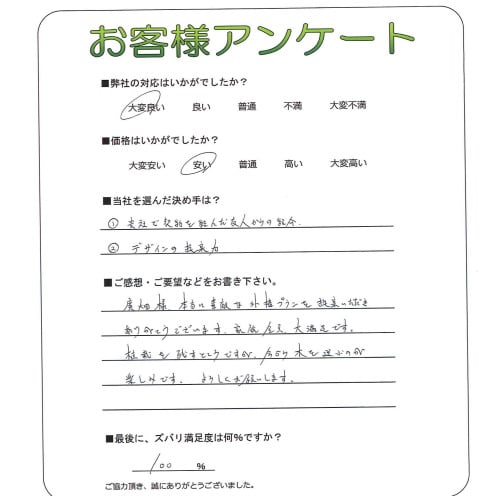 お客様アンケート
■弊社の対応はいかがでしたか？
大変良い 良い 普通 不満 大変不満
■価格はいかがでしたか？
大変安い 安い 普通 高い 大変高い
■当社を選んだ決め手は？
① 貴社で契約を結んだ友人からの紹介
② デザインの提案力
■ご感想・ご要望などをお書き下さい。
様、本当に素敵な外構プランを提案いただき
ありがとうございます。家族全員、大満足です。
植栽を残すところですが、今から木を選ぶのが
楽しみです。 よろしくお願いします。
■最後に、ズバリ満足度は何%ですか？
100 %
ご協力頂き、誠にありがとうございました。